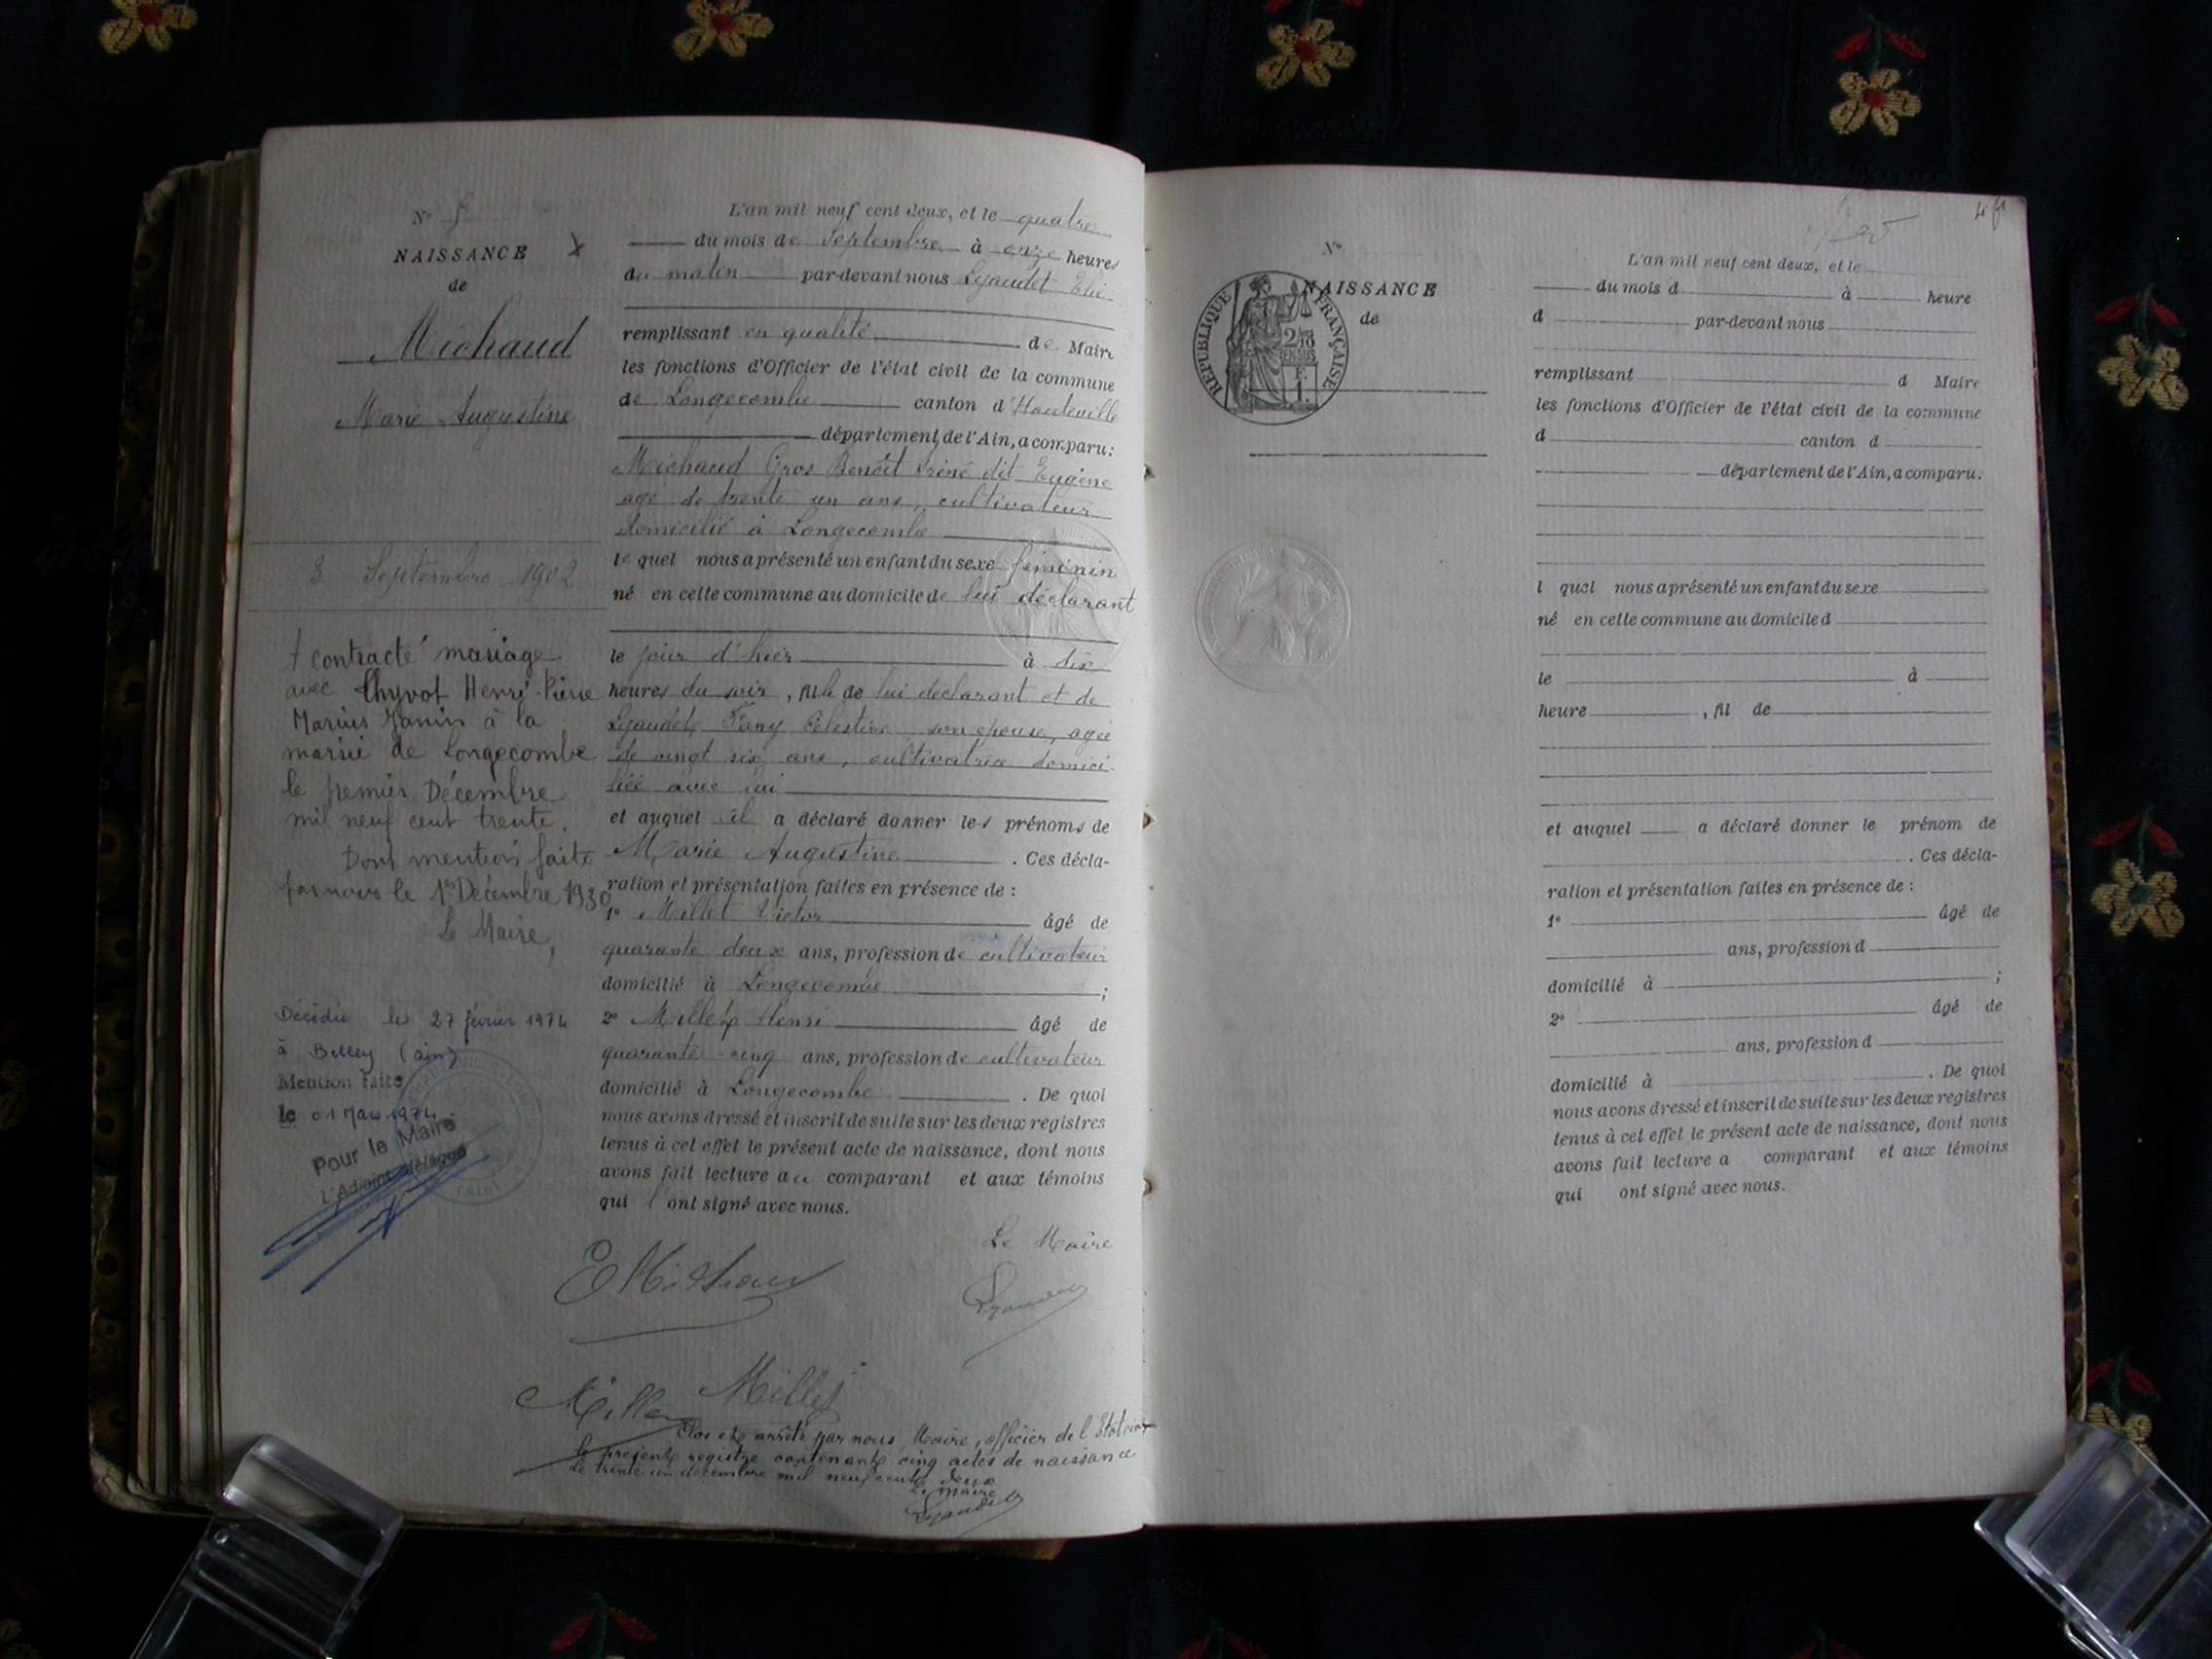 N° 5
NAISSANCE
de
Michaud
Marie Augustine
3 Septembre 1902
A contracté mariage
avec Thyvot Henri-Pierre
Marius Janin à la
mairie de Longecombe
le premier Décembre
mil neuf cent trente.
Dont mention faite
par nous le 1er Décembre 1930
Le Maire,
Décédée le 27 février 1974
à Belley (ain)
Mention faite
le 01 Mars 1974
Pour le Maire
L'Adjoint délégué
L'an mil neuf cent deux, et le quatre
du mois de Septembre à onze heures
du matin par-devant nous Lyaudet Elie
remplissant en qualité de Maire
les fonctions d'Officier de l'état civil de la commune
de Longecombe canton d'Hauteville
département de l'Ain, a comparu:
Michaud Gros Benoît Iréné dit Eugène
agé de trente un ans, cultivateur
domicilié à Longecombe
lequel nous a présenté un enfant du sexe féminin
né en cette commune au domicile de lui déclarant
le jour d'hier à dix
heures du soir, fille de lui déclarant et de
Lyaudet Fany Célestine son épouse, agée
de vingt six ans, cultivatrice domici-
liée avec lui
et auquel il a déclaré donner les prénoms de
Marie Augustine. Ces décla-
ration et présentation faites en présence de :
1° Millet Victor âgé de
quarante deux ans, profession de cultivateur
domicilié à Longecombe ;
2° Millet Henri âgé de
quarante cinq ans, profession de cultivateur
domicilié à Longecombe. De quoi
nous avons dressé et inscrit de suite sur les deux registres
tenus à cet effet le présent acte de naissance, dont nous
avons fait lecture au comparant et aux témoins
qui l'ont signé avec nous.
Le Maire
E Michaud
Lyaudet
Millet Millet
Clos et arrêté par nous, Maire, officier de l'Etat civil
le présent registre contenant cinq actes de naissance
le trente un décembre mil neuf cent deux
Le maire
Lyaudet
N°
NAISSANCE
de
REPUBLIQUE FRANÇAISE
2/10 EN SUS
F. 1.
L'an mil neuf cent deux, et le
du mois d à heure
d par-devant nous
remplissant d Maire
les fonctions d'Officier de l'état civil de la commune
d canton d
département de l'Ain, a comparu.
l quel nous a présenté un enfant du sexe
né en cette commune au domicile d
le à
heure , fil de
et auquel a déclaré donner le prénom de
. Ces décla-
ration et présentation faites en présence de :
1° âgé de
ans, profession d
domicilié à ;
2° âgé de
ans, profession d
domicilié à . De quoi
nous avons dressé et inscrit de suite sur les deux registres
tenus à cet effet le présent acte de naissance, dont nous
avons fait lecture a comparant et aux témoins
qui ont signé avec nous.